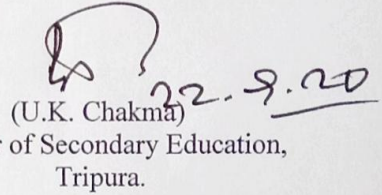 22.9.20
(U.K. Chakma)
of Secondary Education,
Tripura.